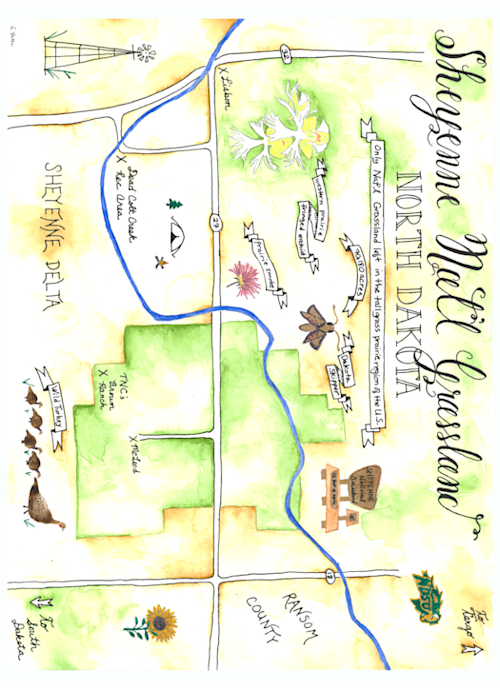 Sheyenne Nat'l Grassland
NORTH DAKOTA
Only Nat'l Grassland left in the tallgrass prairie region of the U.S.
70,180 acres
western prairie
fringed orchid
prairie smoke
Dakota
Skipper
32
x Lisbon
27
x Dead Colt Creek
Rec Area
SHEYENNE DELTA
TNC's
x Brown
Ranch
x McLeod
Wild Turkey
SHEYENNE
NATIONAL
GRASSLAND
18
RANSOM
COUNTY
NDSU
To
Fargo
To
South
Dakota